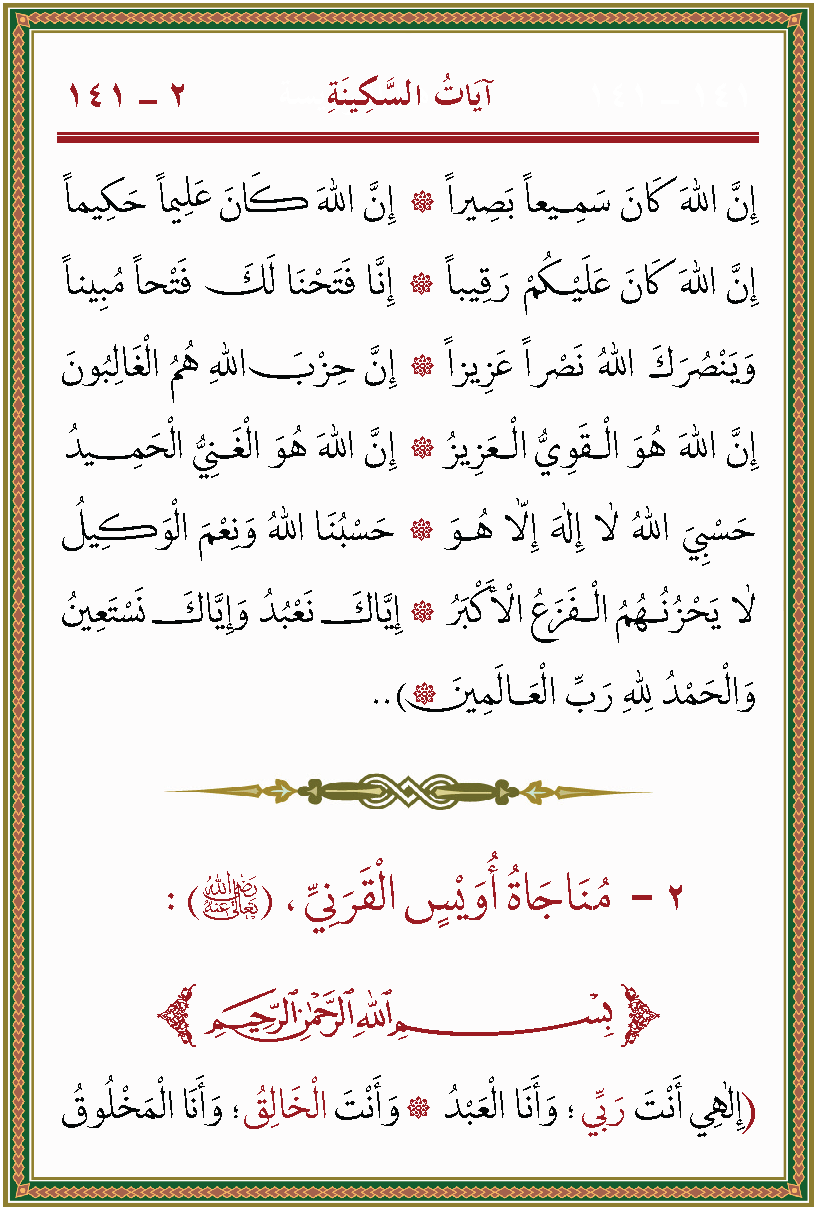 آيَاتُ السَّكِينَةِ ٢ - ١٤١
إِنَّ اللهَ كَانَ سَمِيعاً بَصِيراً ۞ إِنَّ اللهَ كَانَ عَلِيماً حَكِيماً
إِنَّ اللهَ كَانَ عَلَيْكُمْ رَقِيباً ۞ إِنَّا فَتَحْنَا لَكَ فَتْحاً مُبِيناً
وَيَنْصُرَكَ اللهُ نَصْراً عَزِيزاً ۞ إِنَّ حِزْبَ اللهِ هُمُ الْغَالِبُونَ
إِنَّ اللهَ هُوَ الْقَوِيُّ الْعَزِيزُ ۞ إِنَّ اللهَ هُوَ الْغَنِيُّ الْحَمِيدُ
حَسْبِيَ اللهُ لَا إِلٰهَ إِلَّا هُوَ ۞ حَسْبُنَا اللهُ وَنِعْمَ الْوَكِيلُ
لَا يَحْزُنُهُمُ الْفَزَعُ الْأَكْبَرُ ۞ إِيَّاكَ نَعْبُدُ وَإِيَّاكَ نَسْتَعِينُ
وَالْحَمْدُ لِلهِ رَبِّ الْعَالَمِينَ ۞)..
٢ - مُنَاجَاةُ أُوَيْسٍ الْقَرَنِيِّ، (رَضِيَ اللهُ تَعَالَى عَنْهُ) :
بِسْمِ اللهِ الرَّحْمٰنِ الرَّحِيمِ
(إِلٰهِي أَنْتَ رَبِّي ؛ وَأَنَا الْعَبْدُ ۞ وَأَنْتَ الْخَالِقُ ؛ وَأَنَا الْمَخْلُوقُ